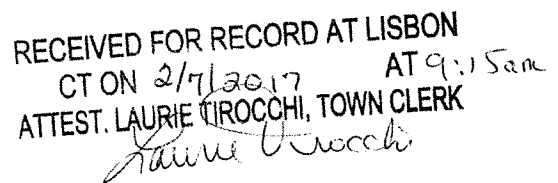 RECEIVED FOR RECORD AT LISBON
CT ON 2/7/2017 AT 9:15am
ATTEST. LAURIE TIROCCHI, TOWN CLERK
Laurie Tirocchi